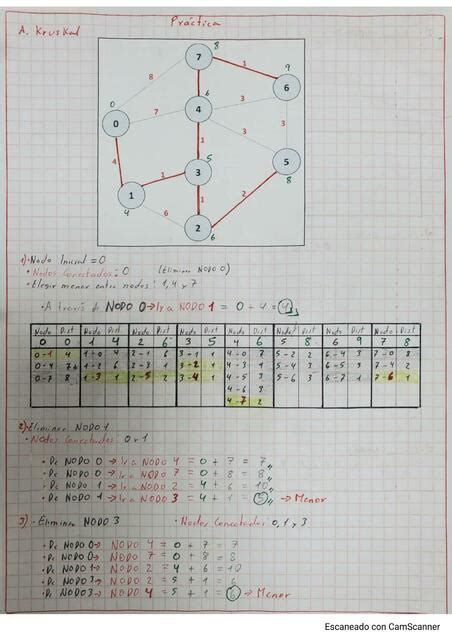 Práctica
A. Kruskal
7
8
1
9
6
8
6
4
3
0
0
7
3
3
5
4
1
5
1
3
8
1
1
2
4
6
2
6
1)·Nodo Inicial = 0
·Nodos Conectados: 0 (Eliminar NODO 0)
·Elegir menor entre nodos: 1, 4 y 7
·A través de NODO 0 → Ir a NODO 1 = 0 + 4 = 4
Nodo Dist Nodo Dist Nodo Dist Nodo Dist Nodo Dist Nodo Dist Nodo Dist Nodo Dist
0 0 1 4 2 6 3 5 4 6 5 8 6 9 7 8
0-1 4 1-0 4 2-1 6 3-1 1 4-0 7 5-2 2 6-4 3 7-0 8
0-4 7 1-2 6 2-3 1 3-2 1 4-3 1 5-4 3 6-5 3 7-4 2
0-7 8 1-3 1 2-5 2 3-4 1 4-5 3 5-6 3 6-7 1 7-6 1
4-6 3
4-7 2
2)·Eliminar NODO 1
·Nodos Conectados: 0 y 1
·De NODO 0 → Ir a NODO 4 = 0 + 7 = 7
·De NODO 0 → Ir a NODO 7 = 0 + 8 = 8
·De NODO 1 → Ir a NODO 2 = 4 + 6 = 10
·De NODO 1 → Ir a NODO 3 = 4 + 1 = 5 → Menor
3) · Eliminar NODO 3 · Nodos Conectados: 0, 1 y 3
·De NODO 0 → NODO 4 = 0 + 7 = 7
·De NODO 0 → NODO 7 = 0 + 8 = 8
·De NODO 1 → NODO 2 = 4 + 6 = 10
·De NODO 3 → NODO 2 = 5 + 1 = 6
·De NODO 3 → NODO 4 = 5 + 1 = 6 → Menor
Escaneado con CamScanner